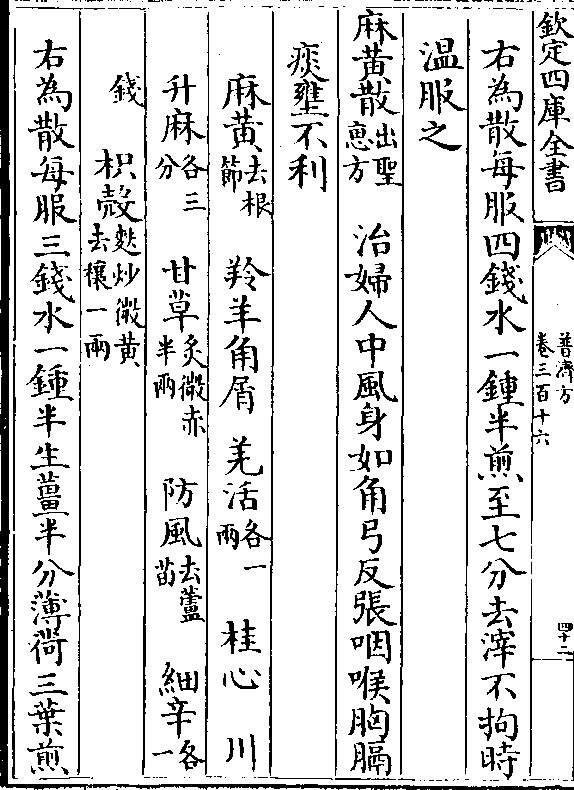 欽定四庫全書
普濟方
卷三百十六
四十二
右為散每服四錢水一鍾半煎至七分去滓不拘時
温服之
麻黄散出聖惠方 治婦人中風身如角弓反張咽喉胸膈
痰壅不利
麻黄去根節 羚羊角屑 羌活各一兩 桂心 川
升麻各三分 甘草炙微赤半兩 防風去蘆苗 細辛各一
錢 枳殻麩炒微黄去穰一兩
右為散每服三錢水一鍾半生薑半分薄荷三葉煎